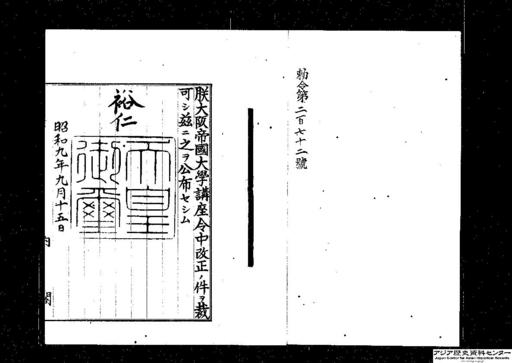 勅令第二百七十二號
朕大阪帝國大學講座令中改正ノ件ヲ裁
可シ茲ニ之ヲ公布セシム
裕仁
天皇
御璽
昭和九年九月十五日
内閣
アジア歴史資料センター
Japan Center for Asian Historical Records